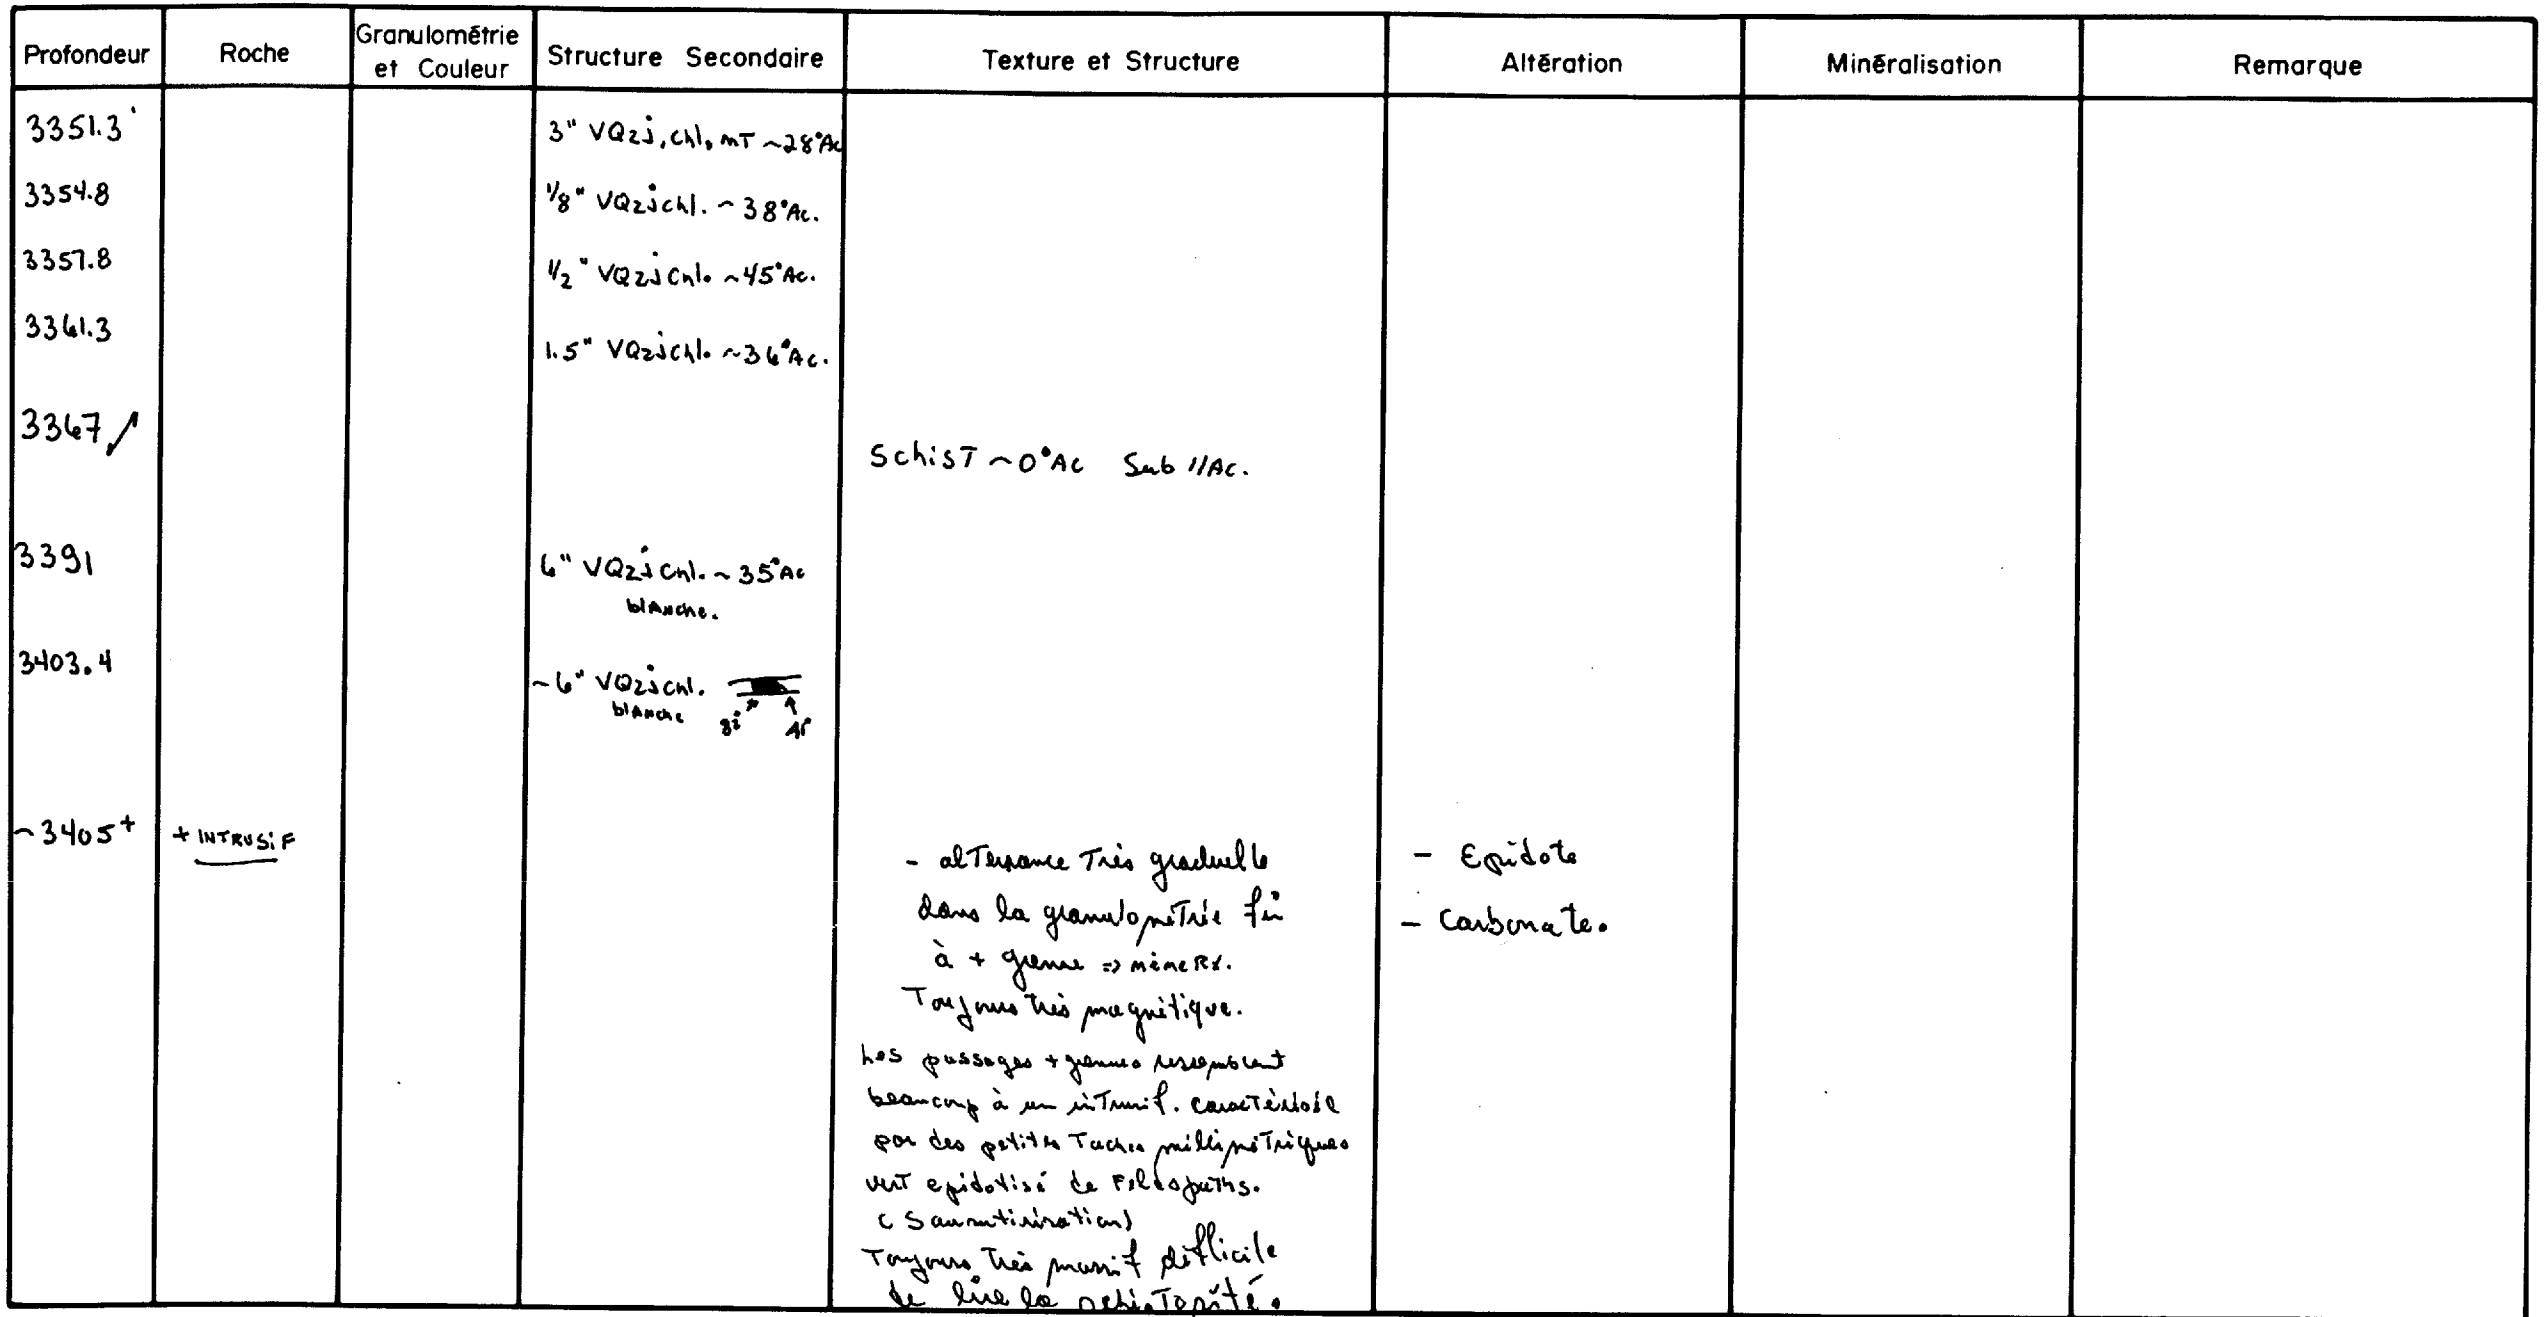 Profondeur Roche Granulométrie et Couleur Structure Secondaire Texture et Structure Altération Minéralisation Remarque
3351.3' 3" VQzj, chl, mT ~28°Ac
3354.8 1/8" VQzjchl. ~38°Ac.
3357.8 1/2" VQzjchl. ~45°Ac.
3361.3 1.5" VQzjchl. ~36°Ac.
3367
SchisT ~0°Ac Sub //Ac.
3391 6" VQzjchl. ~35°Ac
blanche.
3403.4 ~6" VQzjchl.
blanche
~3405+ + INTRUSIF
- alTernance Très graduelle - Epidote
dans la granulométrie fin - Carbonate.
à + grenue => même Rx.
Toujours très magnétique.
Les passages + grenues ressemblent
beaucoup à un intrusif. caractérisé
par des petites Taches millimétriques
vert epidotisé de Feldspaths.
(Saussuritisation)
Toujours très massif difficile
de lire la schistosité.